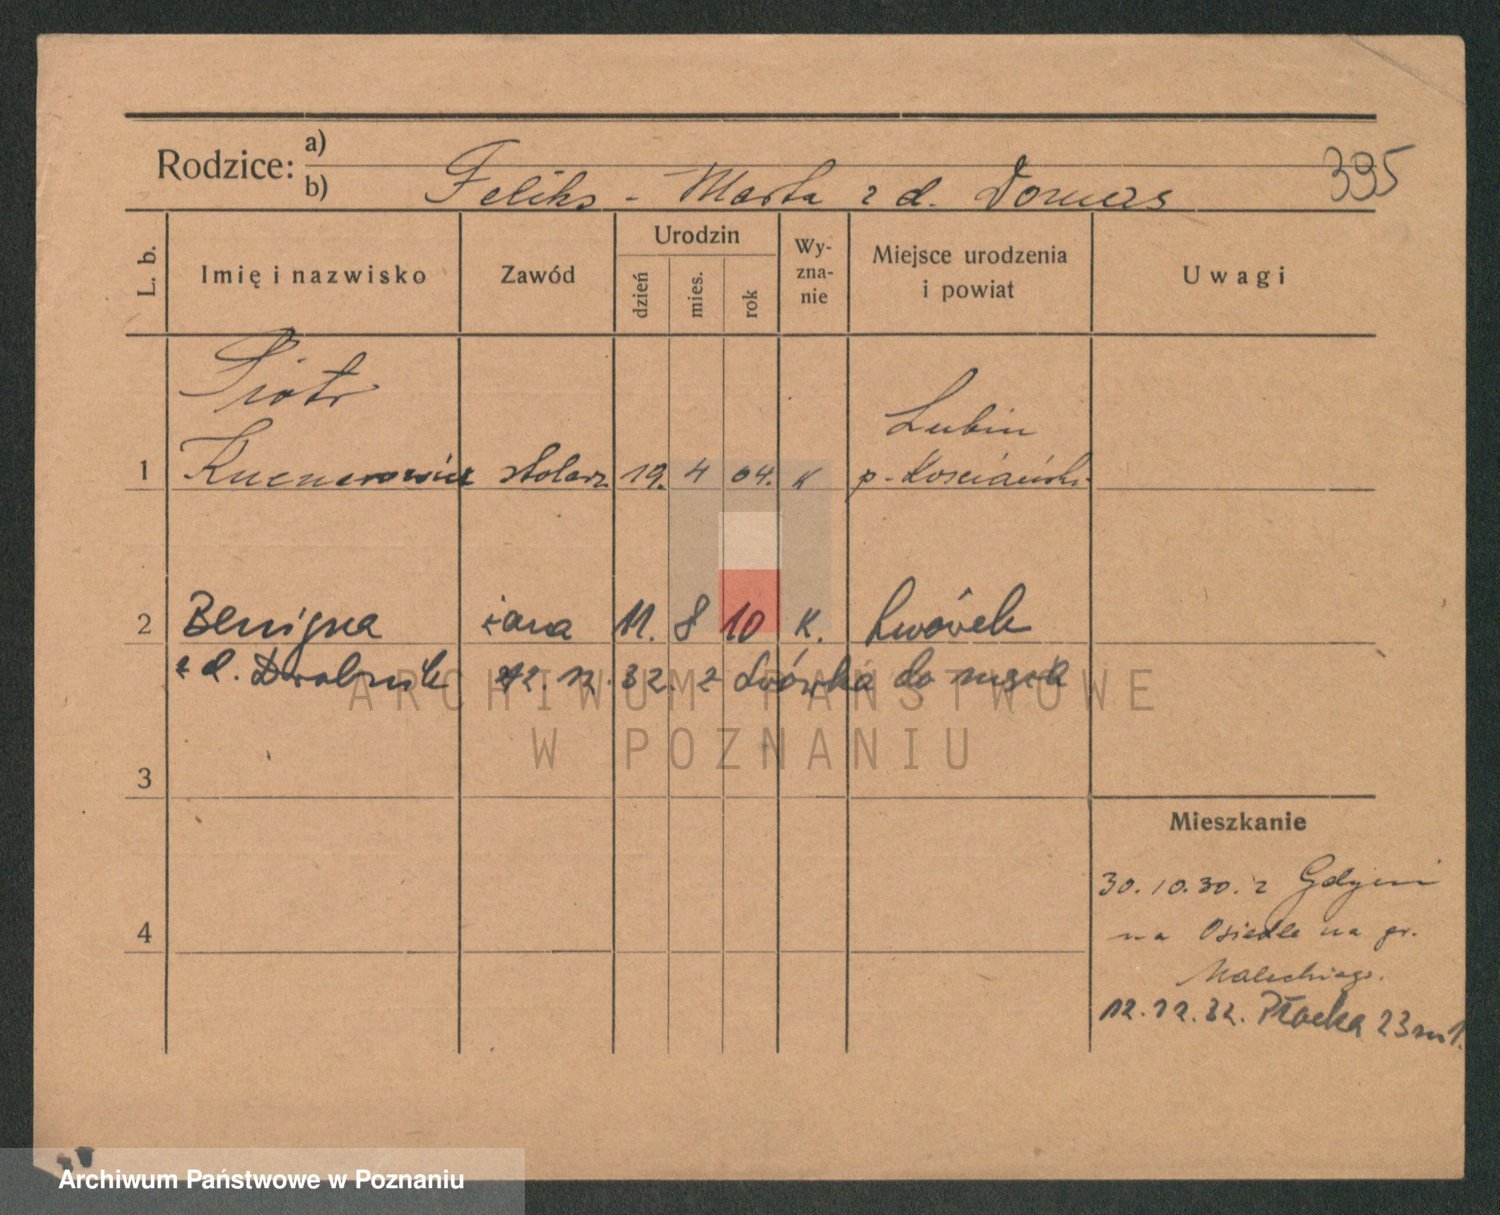 395
Rodzice: a)
b) Feliks - Marta z d.
L. b. Imię i nazwisko Zawód Urodzin dzień mies. rok Wy-zna-nie Miejsce urodzenia i powiat Uwagi
Piotr Lubin
1 stolarz 19. 4 04. K p. Kościański
2 Benigna żona 11. 8 10 K. Lwówek
z d. 12. 12. 32. z Lwówka do męża
3
Mieszkanie
30.10.30. z Gdyni
4 na Osiedle na gr.
Maleckiego.
12.12.32. Płocka 23 m 1.
ARCHIWUM PAŃSTWOWE
W POZNANIU
Archiwum Państwowe w Poznaniu